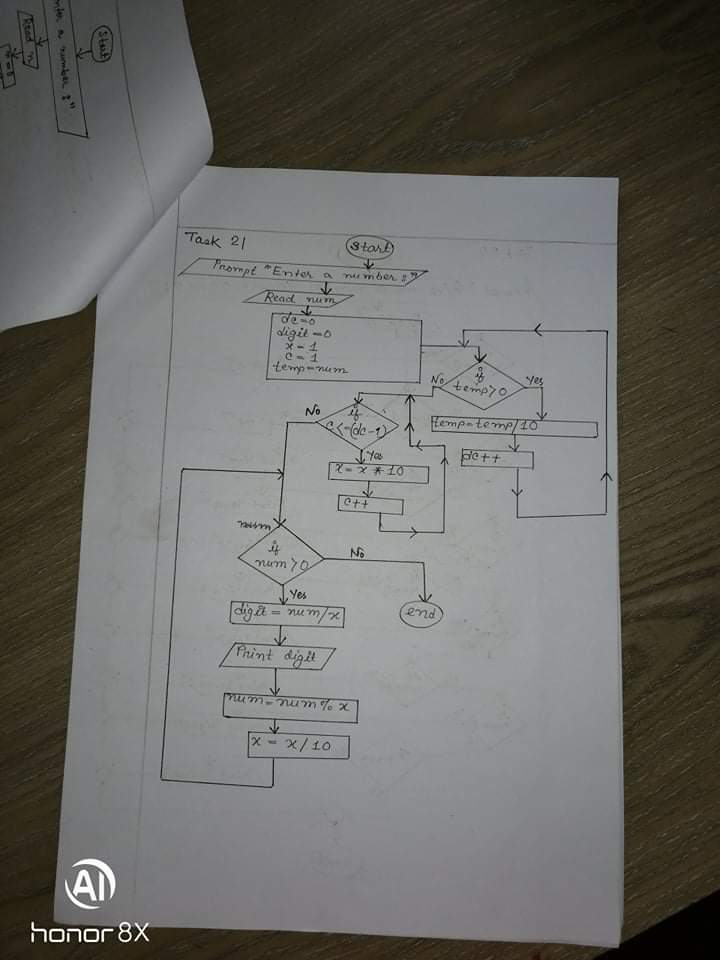 Start
Enter a number :"
Read n
Task 21
Start
Prompt "Enter a number :"
Read num
dc=0
digit=0
x=1
c=1
temp=num
if
temp>0
No
Yes
temp=temp/10
dc++
if
c<=(dc-1)
No
Yes
x=x*10
c++
if
num>0
No
Yes
end
digit=num/x
Print digit
num=num%x
x=x/10
AI
honor 8X